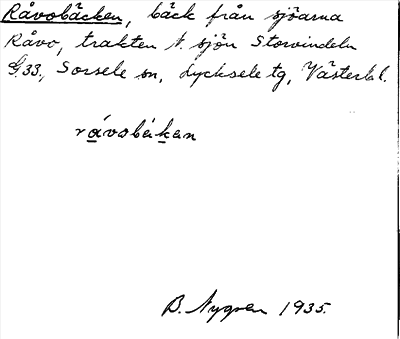 Råvobäcken, bäck från sjöarna
Råvo, trakten N. sjön Storvindeln
G.33., Sorsele sn, Lycksele tg, Västerb. l.
råvobäkan
B. Nygren 1935.